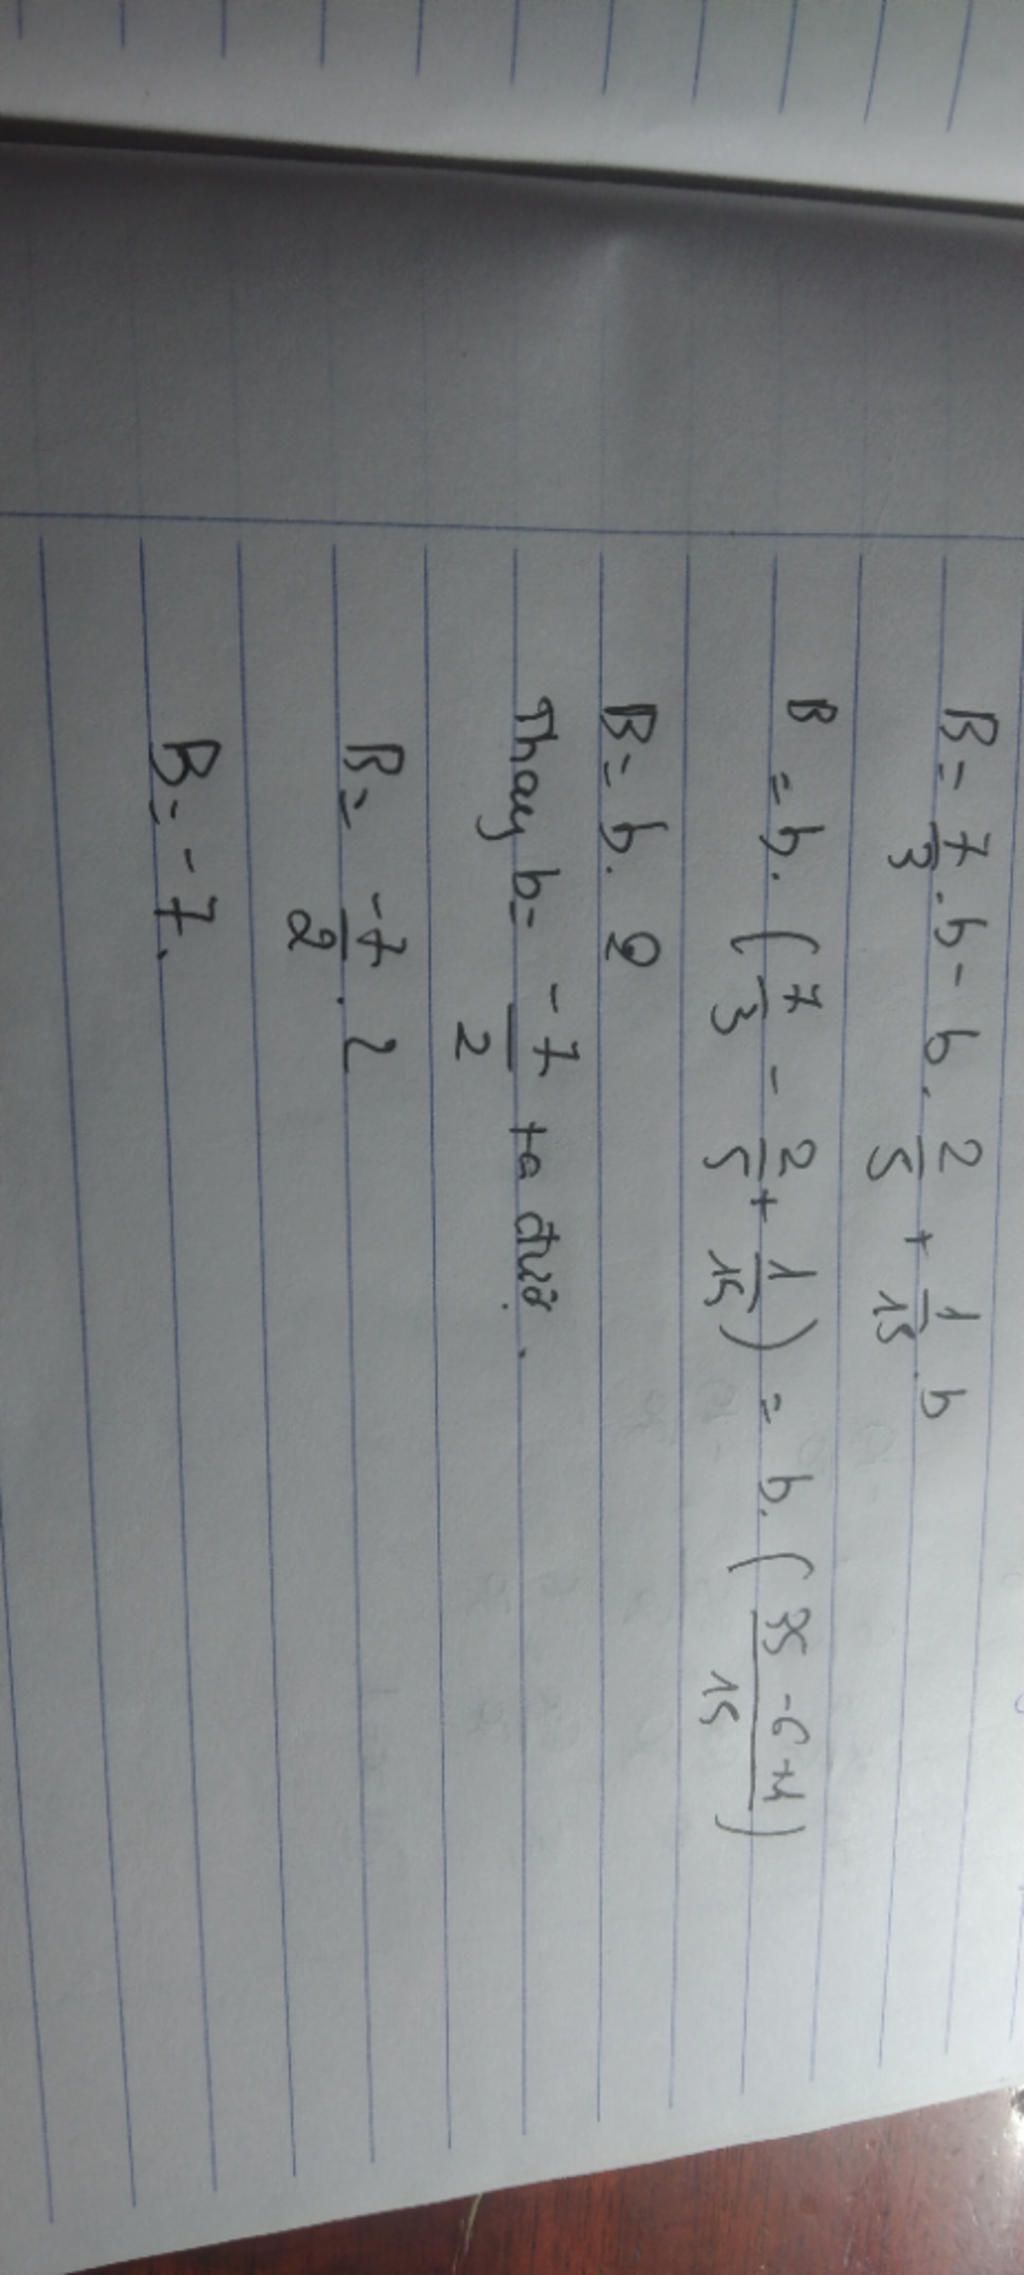 B = 7/3 . b - b. 2/5 + 1/15 . b
B = b. ( 7/3 - 2/5 + 1/15 ) = b. ( 35 - 6 + 1 / 15 )
B = b. 2
Thay b = -7/2 ta được.
B = -7/2 . 2
B = - 7.